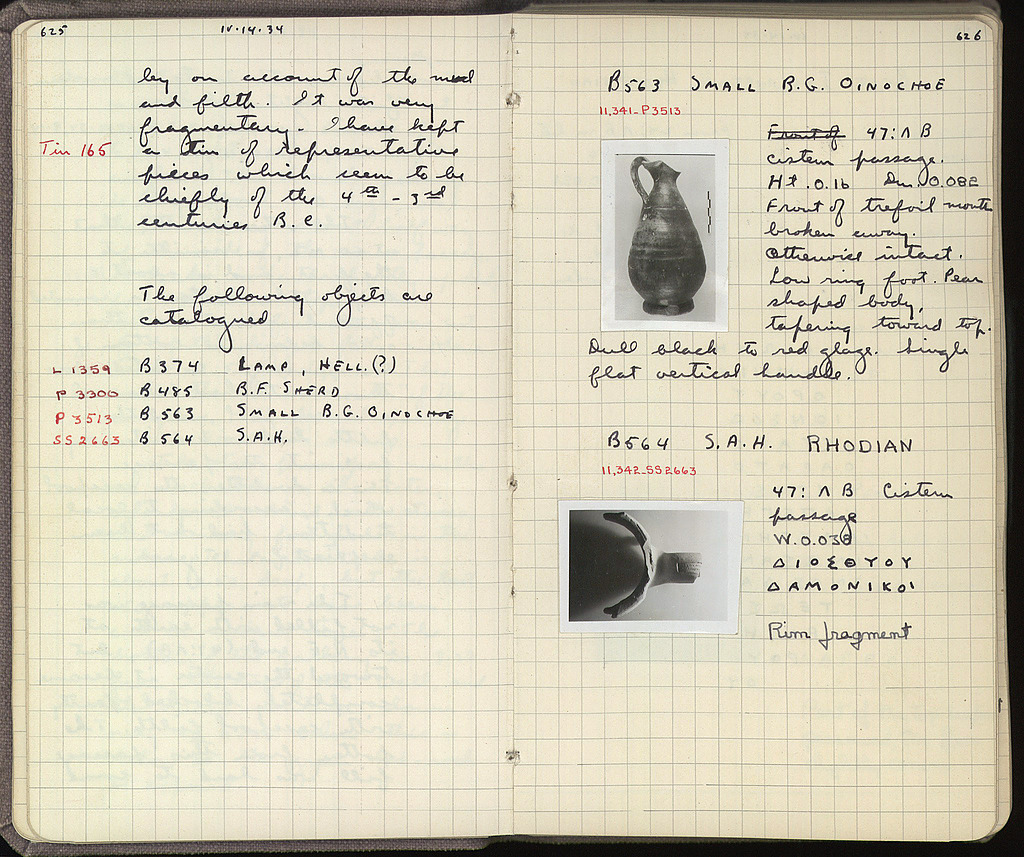 625
IV.14.34
ley on account of the mud
and filth. It was very
fragmentary. I have kept
Tin 165 a tin of representative
pieces which seem to be
chiefly of the 4th - 3rd
centuries B.C.
The following objects are
catalogued
L 1359 B374 LAMP, HELL.(?)
P 3300 B485 B.F. SHERD
P 3513 B563 SMALL B.G. OINOCHOE
SS2663 B564 S.A.H.
626
B563 SMALL B.G. OINOCHOE
11,341-P3513
Front of 47:ΛB
cistern passage.
Ht. 0.16 Dm. 0.082
Front of trefoil mouth
broken away.
Otherwise intact.
Low ring foot. Pear
shaped body,
tapering toward top.
Dull black to red glaze. Single
flat vertical handle.
B564 S.A.H. RHODIAN
11,342-SS2663
47:ΛB Cistern
passage
W.0.038
ΔΙΟΣΘΥΟΥ
ΔΑΜΟΝΙΚΟΙ
Rim fragment